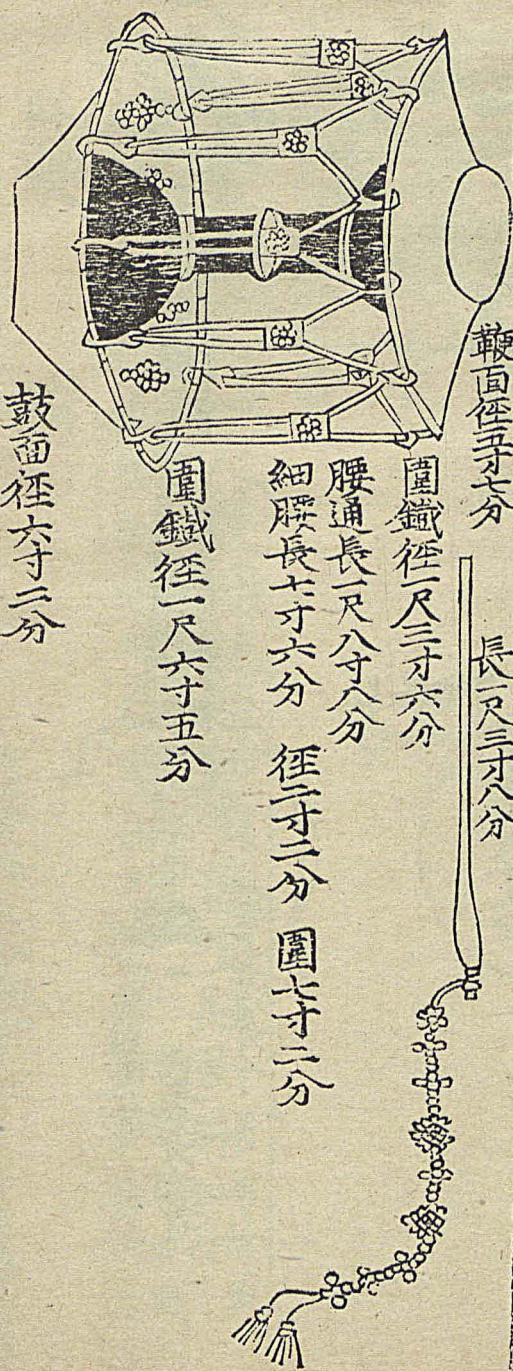 鞭面徑五寸七分
長一尺三寸八分
圍鐵徑一尺三寸六分
腰通長一尺八寸八分
細腰長七寸六分 徑二寸二分 圍七寸二分
圍鐵徑一尺六寸五分
鼓面徑六寸二分